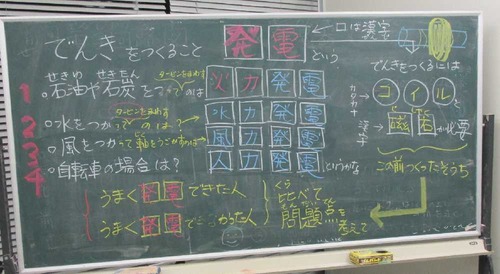 でんきをつくること 発電 という
←口は漢字
せきゆ せきたん タービンをまわす
1 。石油や石炭をつかってのは 火力発電
タービンをまわす
2 。水をつかってのは？→ 水力発電
3 。風をつかって軸をうごかすのは→ 風力発電
4 。自転車の場合は？ 人力発電 というかな
うまく発電できた人
うまく発電でこなかった人
くら
比べて
もんだいてん
問題点を
考えて
でんきをつくるには
カタカナ コイル と
漢字 磁 が必要
この前つくったそうち